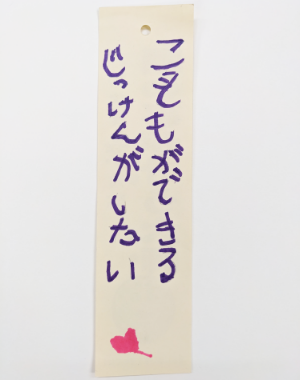 こどもができる
じっけんがしたい